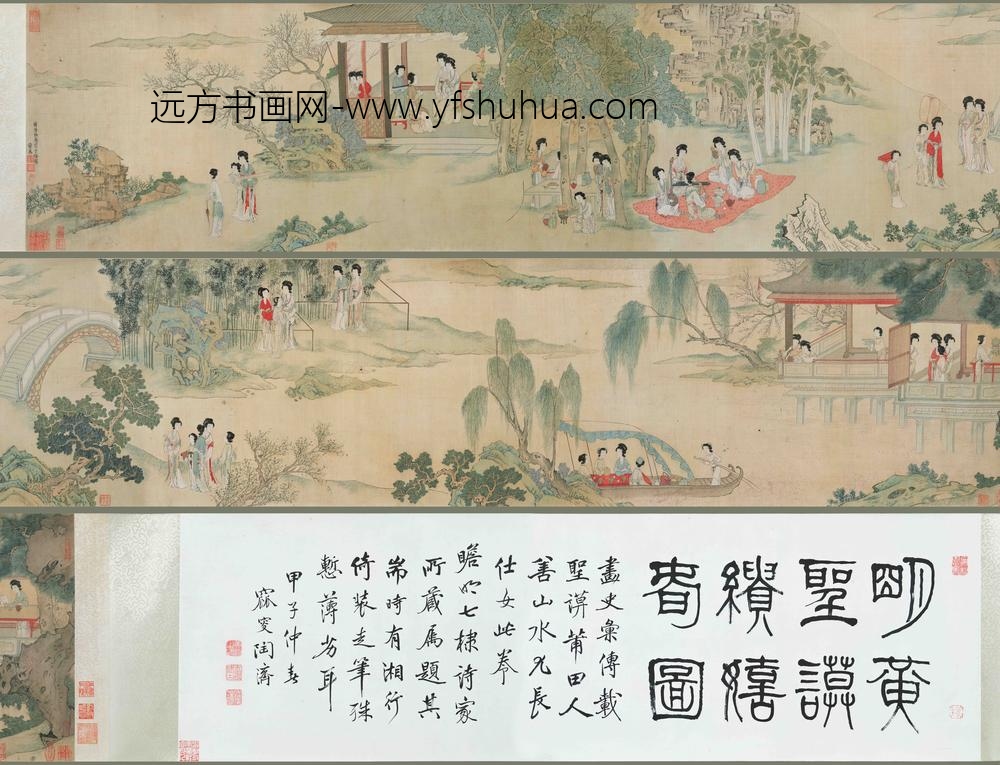 远方书画网-www.yfshuhua.com
明黄
聖謨
繢嬉
春圖
畫史彙傳載
聖謨莆田人
善山水尤長
仕女此卷
瞻明七棣詩家
所藏属題其
耑時有湘行
倚装走筆殊
慙薄劣耳
甲子仲春